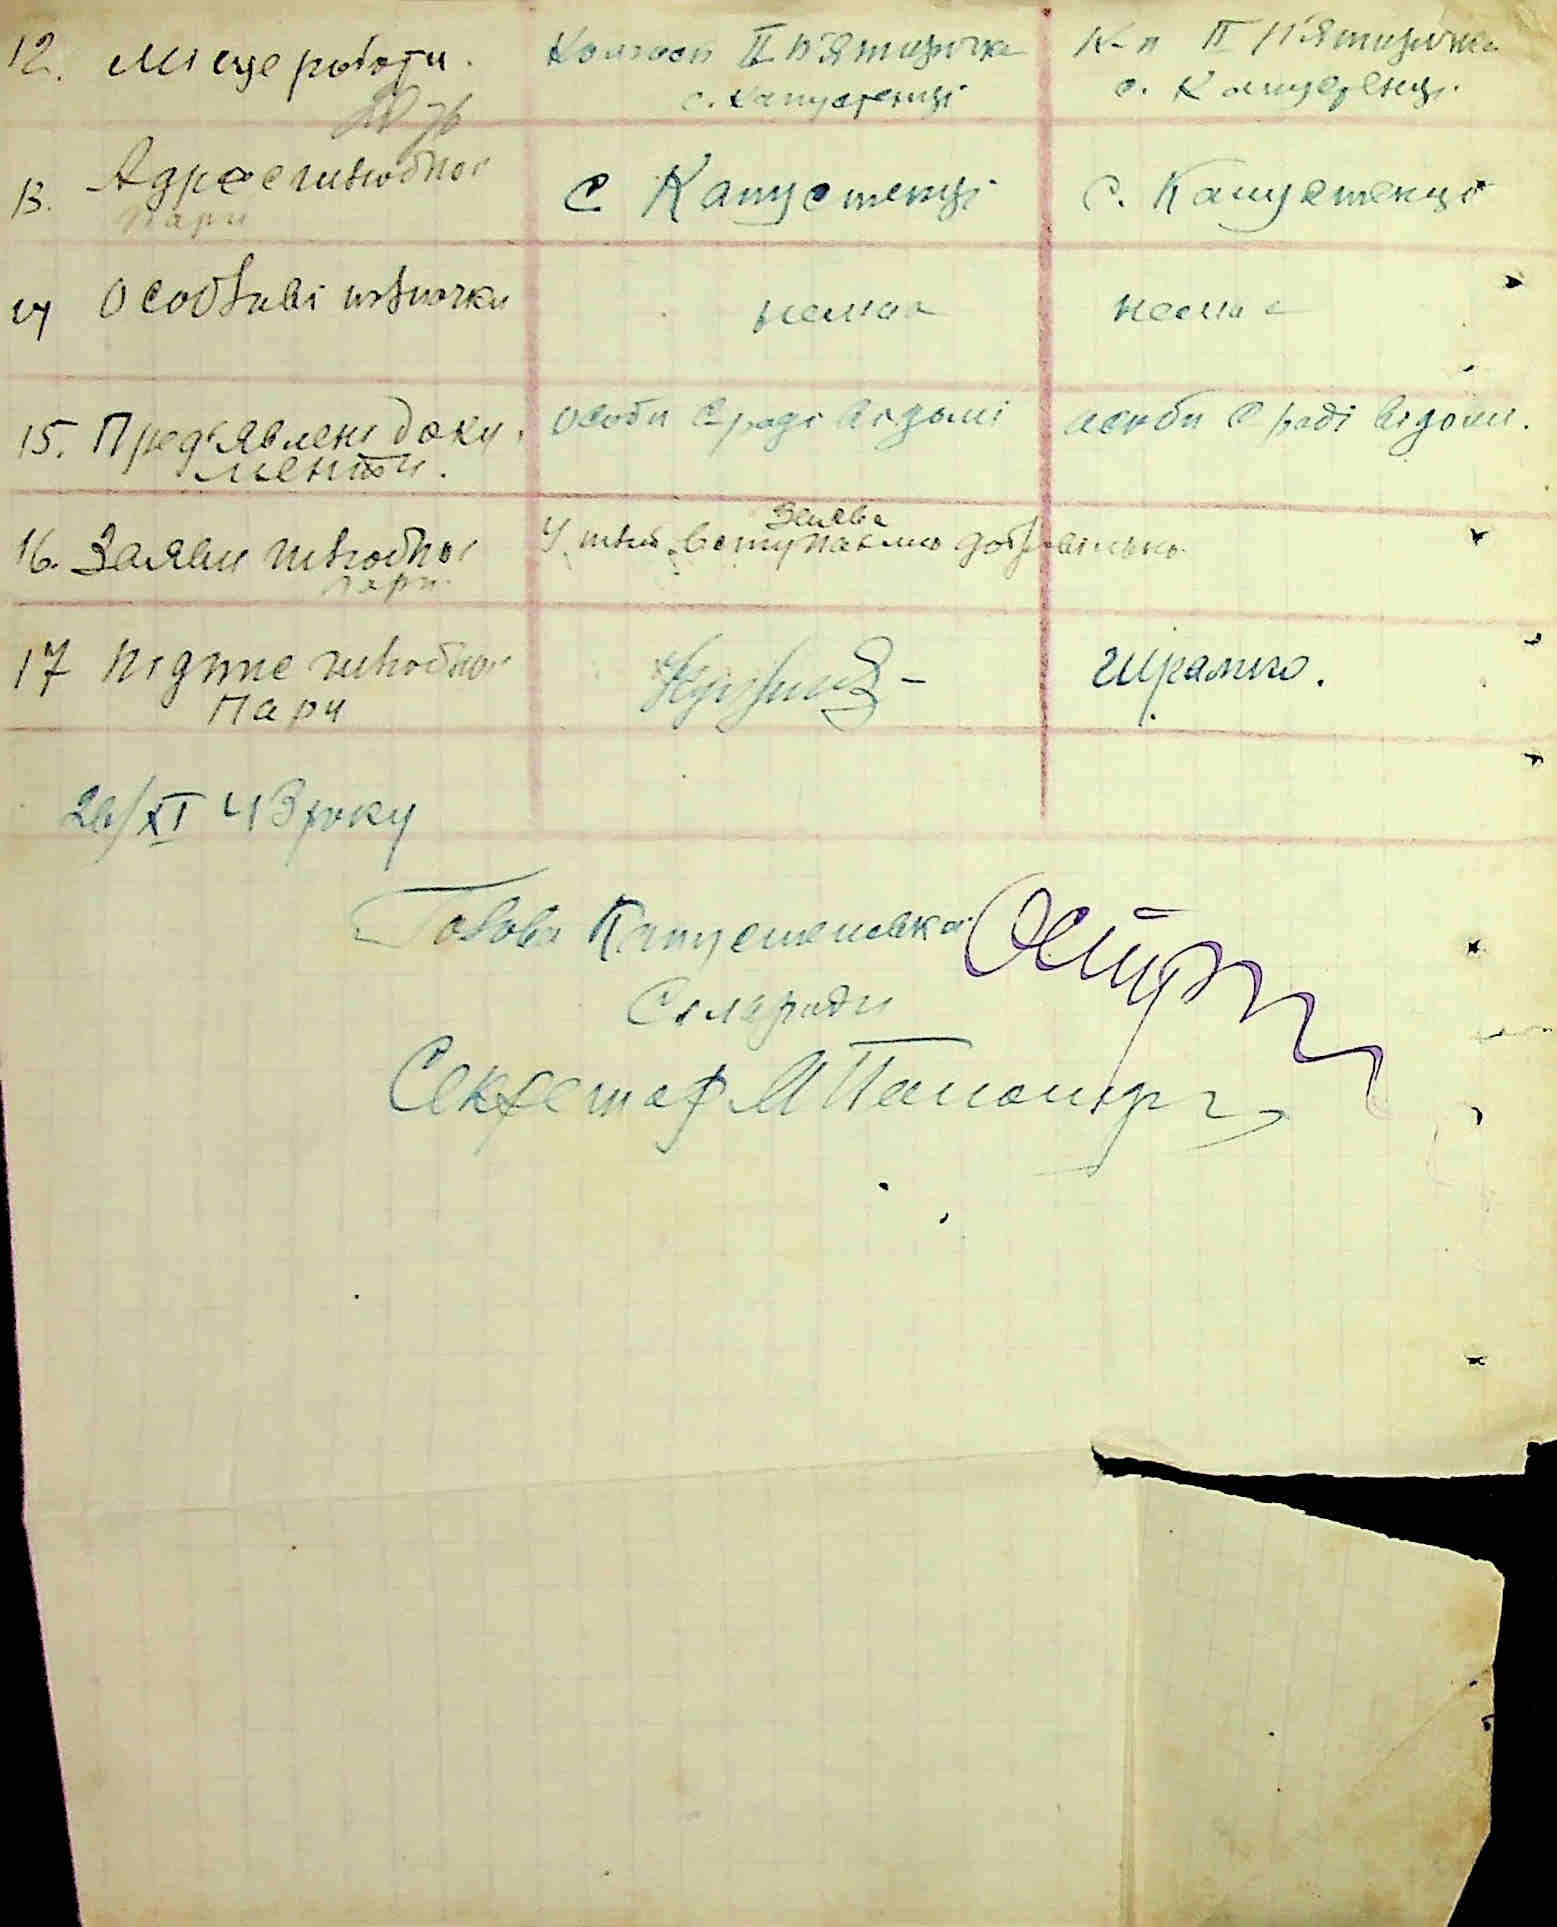 12. Місце роботи. Колгосп II п'ятирічка К-п II П'ятирічка
с. Капустенці с. Капустенці.
13. Адрес шлюбної С Капустенці С. Капустенці
Пари
14 Особливі позначки немає немає
15. Пред'явлені доку особи с/раді відомі особи с/раді відомі.
менти.
Заява
16. Заяви шлюбної У шлюб вступаємо добровільно.
пари
17 Підпис шлюбної Шрамко.
Пари
26/XI 43 року
Голова Капустенської
Сільради
Секретар